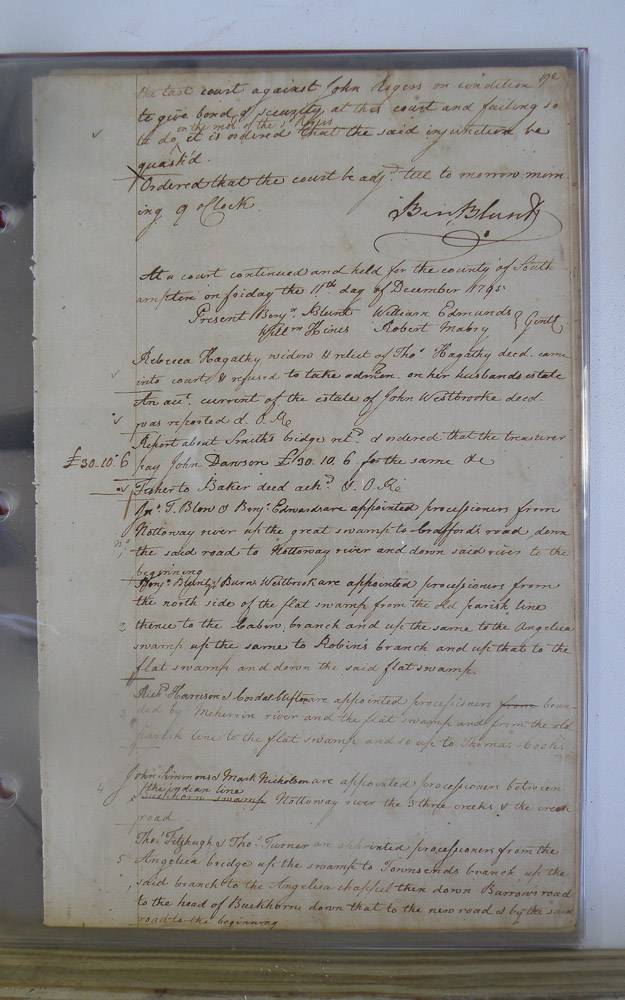 the last court against John Rogers on condition
to give bond & security at this court and failing so
on the mo: of the s.d Rogers
to do it is ordered that the said injunction be
quash'd.
Ordered that the court be adj.d till to morrow morn
ing 9 oClock.
Ben. Blunt
At a court continued and held for the county of South
ampton on friday the 11th day of December 1795
Present Benj.n Blunt William Edmunds } Gentl
Will.m Hines Robert Mabry
Rebecca Hagathy widow & relict of Tho.s Hagathy deced. came
into court & refused to take admon. on her husbands estate
An acc.t current of the estate of John Westbrooke deced
was reported & O. R.
Report about Smith's bridge ret.d & ordered that the treasurer
£30.10.6 pay John Dawson £30.10.6 for the same &c
to Baker deed ack.d & O. R.
Jn.o T. Blow & Benj.n Edwards are appointed processioners from
Nottoway river up the great swamp to Crafford's road, down
the said road to Nottoway river and down said river to the
beginning
Benj.n Blunt & Burns Westbrook are appointed processioners from
the north side of the flat swamp from the old parish line
2 thence to the Cabin branch and up the same to the Angelica
swamp up the same to Robin's branch and up that to the
flat swamp and down the said flat swamp.
Rich.d Harrison & Cordal Clifton are appointed processioners from boun
3 ded by Meherrin river and the flat swamp and from the old
parish line to the flat swamp and so up to Thomas
John Simmons & Mark Nicholson are appointed processioners between
4 the indian line
Buckhorn swamp Nottoway river the 3 three creeks & the cross
road
Tho.s Fitzhugh & Tho.s Turner are appointed processioners from the
5 Angelica bridge up the swamp to Townsends branch up the
said branch to the Angelica chappel then down Barrows road
to the head of Buckhorn down that to the new road & by the said
road to the beginning